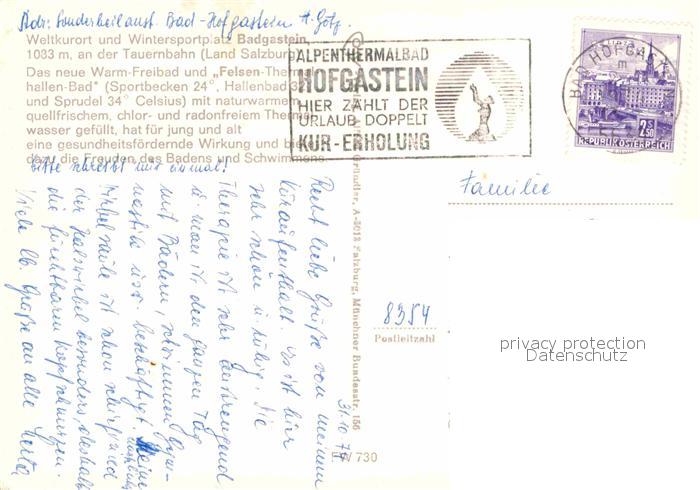 Adr: Sonderheilanst. Bad-Hofgastein A. Götz.
Weltkurort und Wintersportplatz Badgastein,
1083 m, an der Tauernbahn (Land Salzburg)
Das neue Warm-Freibad und „Felsen-Therm
hallen-Bad" (Sportbecken 24°, Hallenbad 3
und Sprudel 34° Celsius) mit naturwarmem
quellfrischem, chlor- und radonfreiem Therm
wasser gefüllt, hat für jung und alt
eine gesundheitsfördernde Wirkung und bie
dazu die Freuden des Badens und Schwimmens.
bitte schreibt mir einmal!
ALPENTHERMALBAD
HOFGASTEIN
HIER ZÄHLT DER
URLAUB DOPPELT
KUR-ERHOLUNG
BAD HOFGA
2S50
REPUBLIK ÖSTERREICH
Familie
Gründler, A-5012 Salzburg, Münchner Bundesstr. 156
8354
Postleitzahl
privacy protection
Datenschutz
31.10.
FW 730
Recht liebe Grüße von meinem
Kuraufenthalt. Es ist hier
sehr schön u. ruhig. Die
Therapie ist sehr anstrengend
u. man ist den ganzen Tag
mit Bädern, Schwimmen Gym-
nastik usw. beschäftigt. Meine
Wirbelsäule ist schon
der Halswirbel besonders, deshalb
die furchtbaren Kopfschmerzen.
Viele lb. Grüße an alle Herta